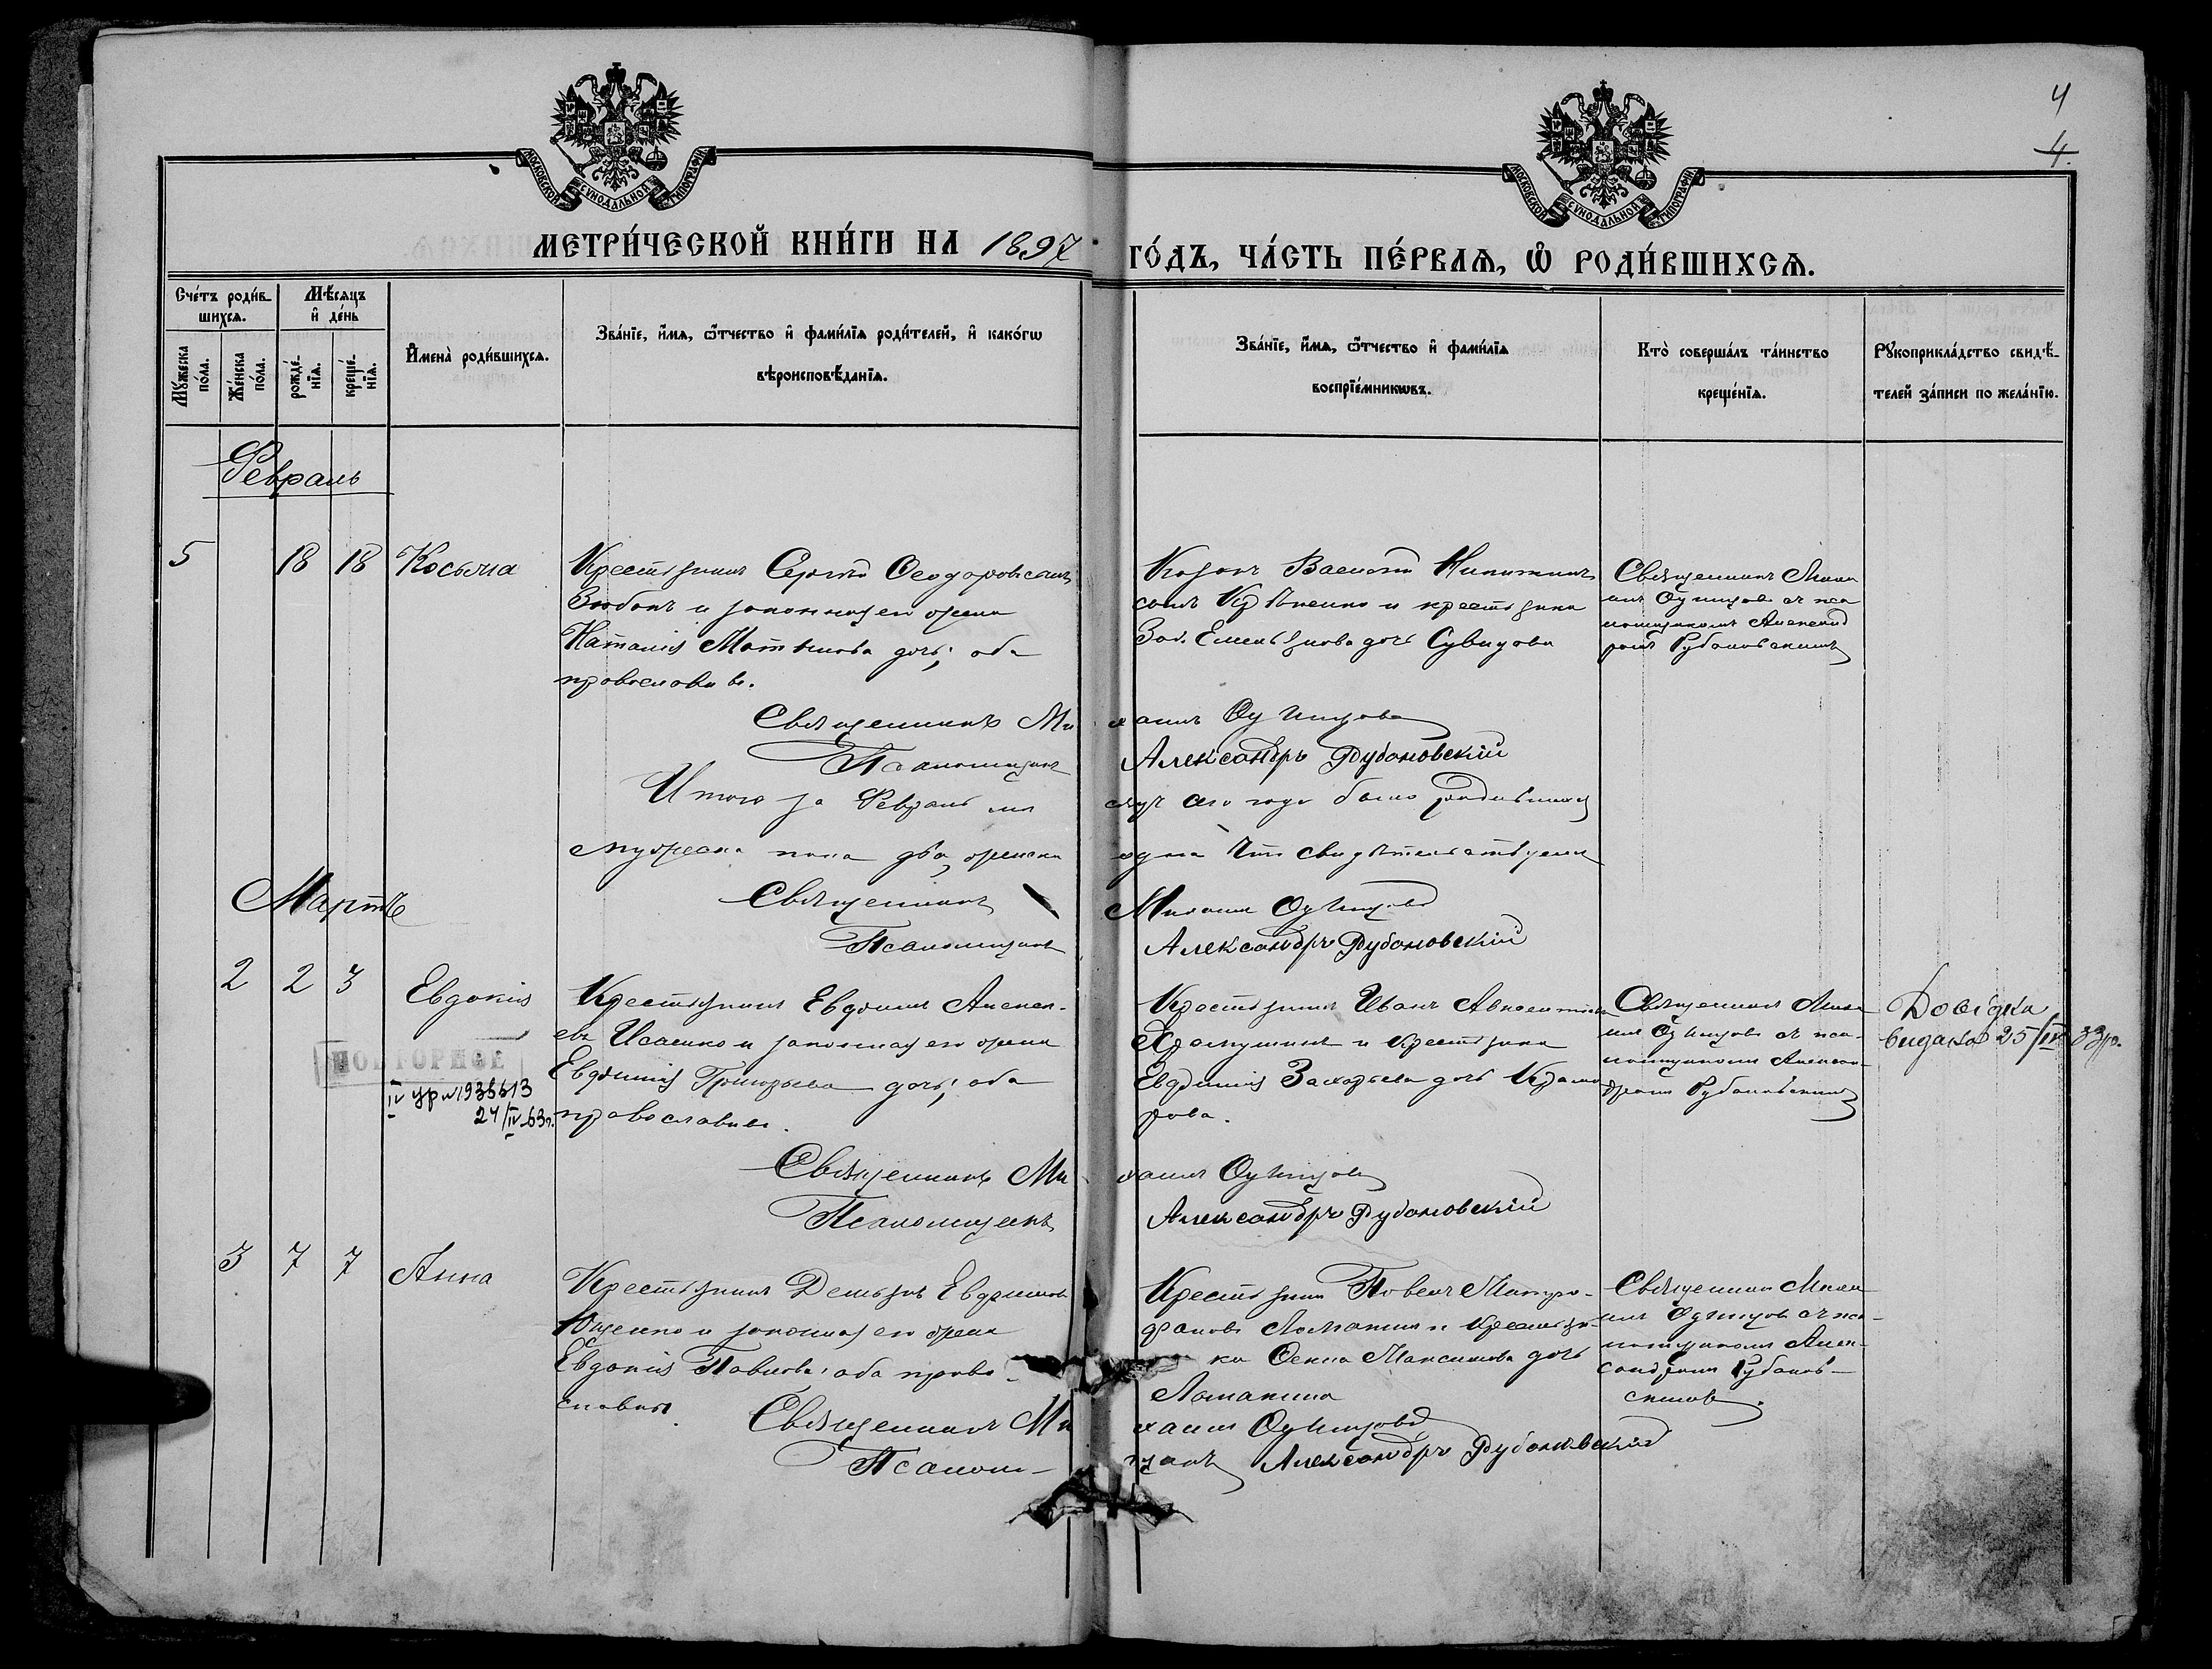 4
4.
МОСКОВСКОЙ СѴНОДАЛЬНОЙ ТИПОГРАФІИ
МОСКОВСКОЙ СѴНОДАЛЬНОЙ ТИПОГРАФІИ
МЕТРИ́ЧЕСКОЙ КНИ́ГИ НА 1897 ГО́ДЪ, ЧА́СТЬ ПЕ́РВАѦ, Ѡ҆ РОДИ́ВШИХСѦ.
Сче́тъ роди́в-
шихсѧ.
Мꙋ́жеска по́ла.
Же́нска по́ла.
Мѣ́сѧцъ
и҆ де́нь
рожде́-
нїѧ.
креще́-
нїѧ.
И҆мена̀ роди́вшихсѧ.
Зва́нїе, и҆́мѧ, ѻ҆́тчество и҆ фами́лїѧ роди́телей, и҆ како́гѡ
вѣроисповѣ́данїѧ.
Зва́нїе, и҆́мѧ, ѻ҆́тчество и҆ фами́лїѧ
воспрїе́мникѡвъ.
Кто̀ соверша́лъ та́инство
креще́нїѧ.
Рꙋкоприкла́дство свидѣ́-
телей за́писи по жела́нїю.
Февраль
5 18 18 Косьма
Крестьянинъ Сергѣй Ѳеодоровъ сынъ
и законная его жена
Наталія Матвѣева дочь; оба
православные.
Козакъ Василій Никитинъ
сынъ и крестьянка
Емельянова дочь
Священникъ Миха
илъ Одинцовъ съ пса
ломщикомъ Александ
ромъ Рубановскимъ
Священникъ Михаилъ Одинцовъ
Псаломщикъ Александръ Рубановскій
Итого за Февраль мѣсяцъ сего года было родившихся
мужеска пола два, женска одна Что свидѣтельствуемъ
Священникъ Михаилъ Одинцовъ
Псаломщикъ Александръ Рубановскій
Мартъ
2 2 3 Евдокія
Крестьянинъ Евфимій Алексѣ-
евъ Исаенко и законная его жена
Евфимія Григорьева дочь; оба
православные.
Крестьянинъ Иванъ Авксентьевъ
и крестьянка
Евфимія Захарьева дочь Крама
рова.
Священникъ Миха
илъ Одинцовъ съ пса-
ломщикомъ Алексан-
дромъ Рубановскимъ
Довідка
видана 25/IV 33р.
ПОВТОРНОЕ
24/IV 63г.
Священникъ Михаилъ Одинцовъ
Псаломщикъ Александръ Рубановскій
3 7 7 Анна
Крестьянинъ Демьянъ Евфимовъ
Ющенко и законная его жена
Евдокія Павлова; оба право-
славные.
Крестьянинъ Павелъ Митро-
фановъ Ломакинъ и крестьян-
ка Ѳекла Максимова дочь
Ломакина
Священникъ Миха
илъ Одинцовъ съ пса-
ломщикомъ Алек-
сандромъ Рубанов-
скимъ.
Священникъ Михаилъ Одинцовъ
Псаломщикъ Александръ Рубановскій